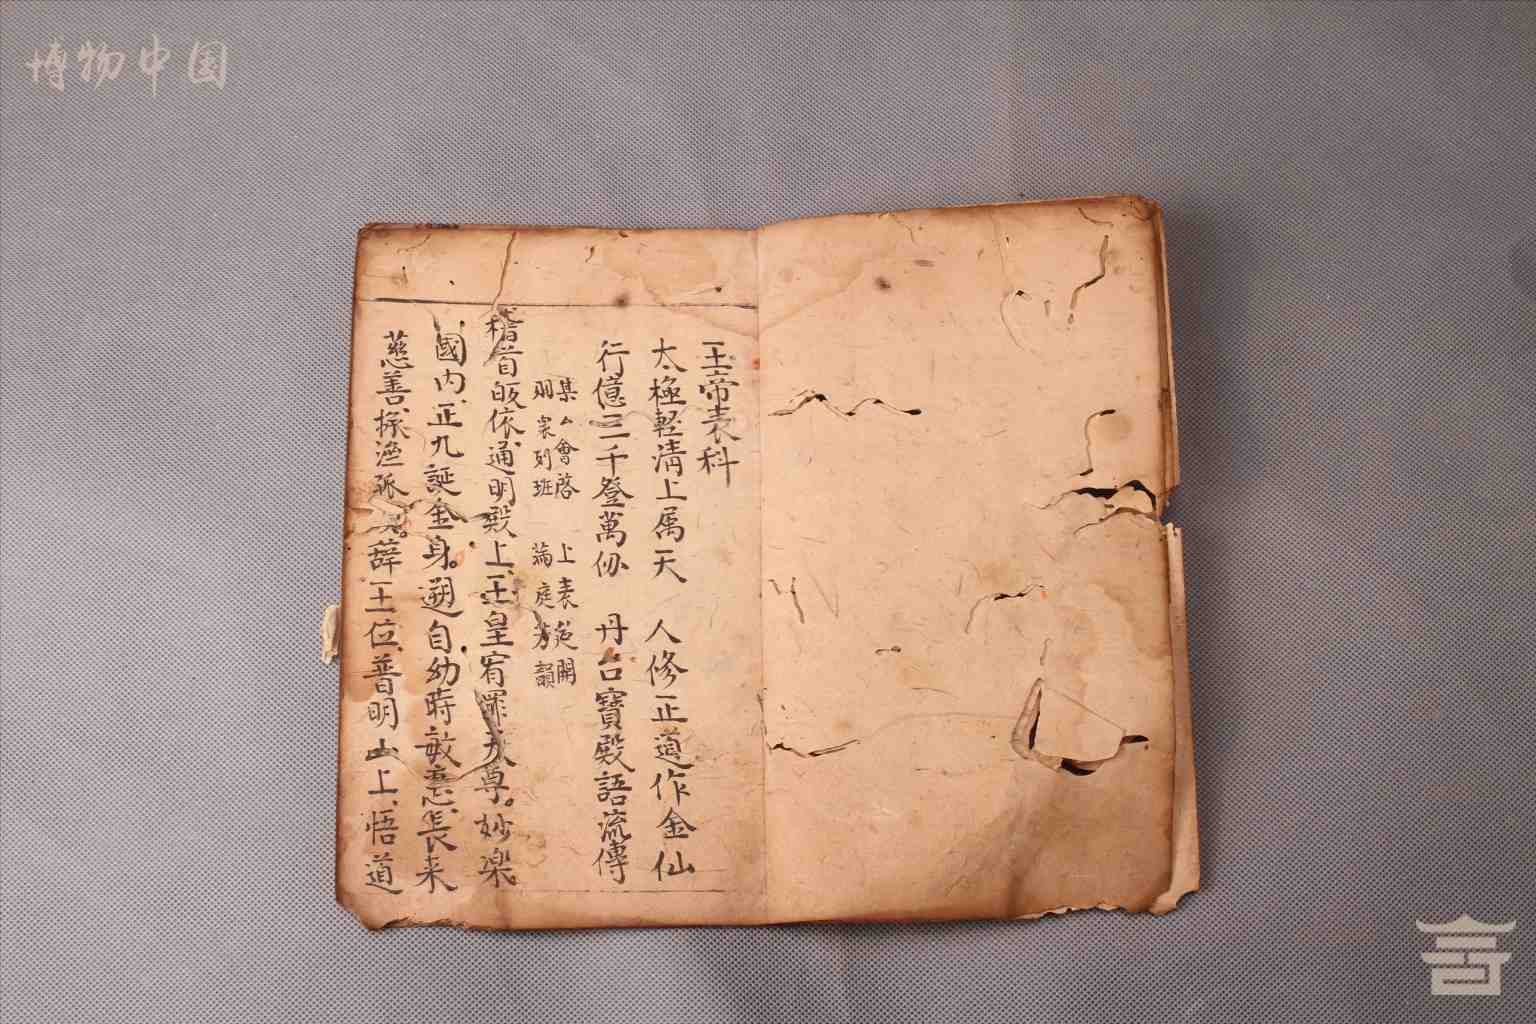 博物中国
玉帝表科
太極輕清上属天　人修正道作金仙
行億三千登萬劫　丹台寶殿語流傳
集众會啓　上表筵開
羽衆列班　滿庭芳韻
稽首皈依、通明殿上、玉皇宥罪天尊。妙楽
國内、正九誕金身。遡自幼時敏慧、長来
慈善、孤。辞王位、普明山上、悟道